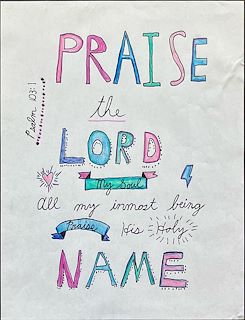 PRAISE
the
Psalm 103:1
LORD
My Soul
all my inmost being
Praise His Holy
NAME